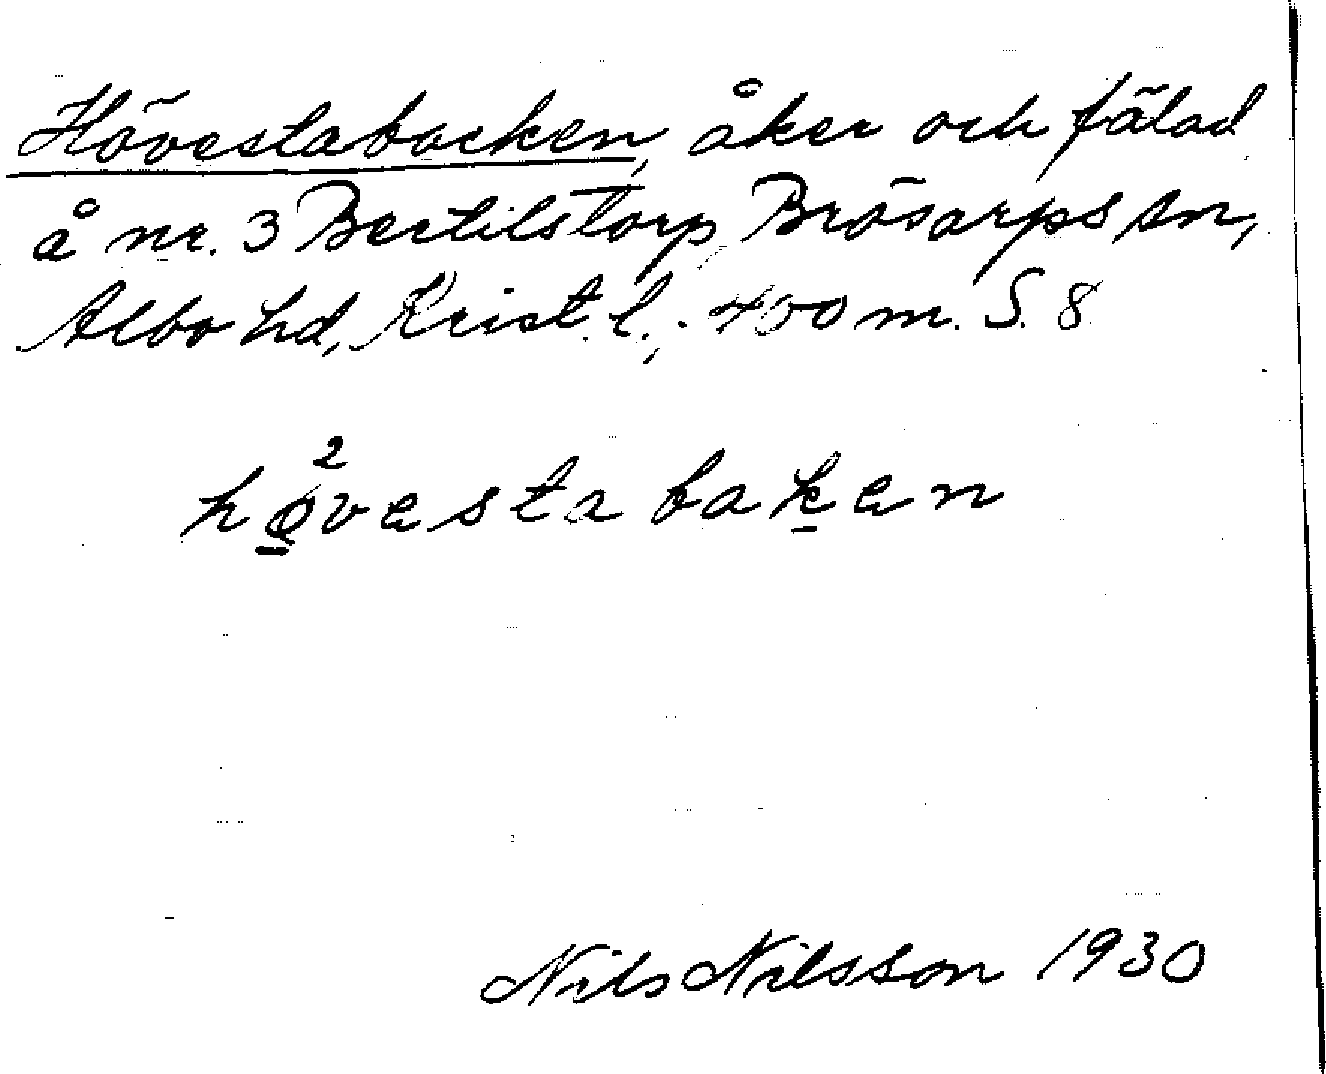 Hövestabacken, åker och fälad
å nr. 3 Bertilstorp, Brösarps sn,
Albo hd, Krist. l., 400 m. S. 8
hø̠²vesta bak̠en
Nils Nilsson 1930